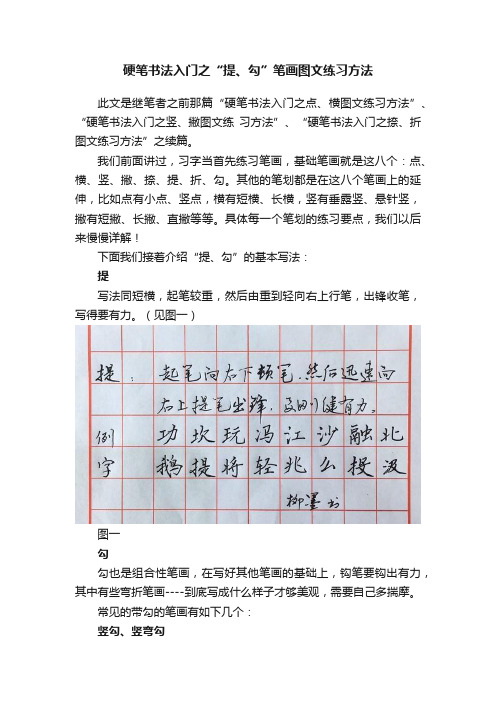 硬笔书法入门之“提、勾”笔画图文练习方法
此文是继笔者之前那篇“硬笔书法入门之点、横图文练习方法”、
“硬笔书法入门之竖、撇图文练 习方法”、“硬笔书法入门之捺、折
图文练习方法”之续篇。
我们前面讲过，习字当首先练习笔画，基础笔画就是这八个：点、
横、竖、撇、捺、提、折、勾。其他的笔划都是在这八个笔画上的延
伸，比如点有小点、竖点，横有短横、长横，竖有垂露竖、悬针竖，
撇有短撇、长撇、直撇等等。具体每一个笔划的练习要点，我们以后
来慢慢详解！
下面我们接着介绍“提、勾”的基本写法：
提
写法同短横，起笔较重，然后由重到轻向右上行笔，出锋收笔，
写得要有力。（见图一）
提：起笔向右下顿笔，然后迅速向
右上提笔出锋，要刚健有力。
例 功坎玩冯江沙融北
字 鹅提将轻兆么投汲
柳墨书
图一
勾
勾也是组合性笔画，在写好其他笔画的基础上，钩笔要钩出有力，
其中有些弯折笔画----到底写成什么样子才够美观，需要自己多揣摩。
常见的带勾的笔画有如下几个：
竖勾、竖弯勾